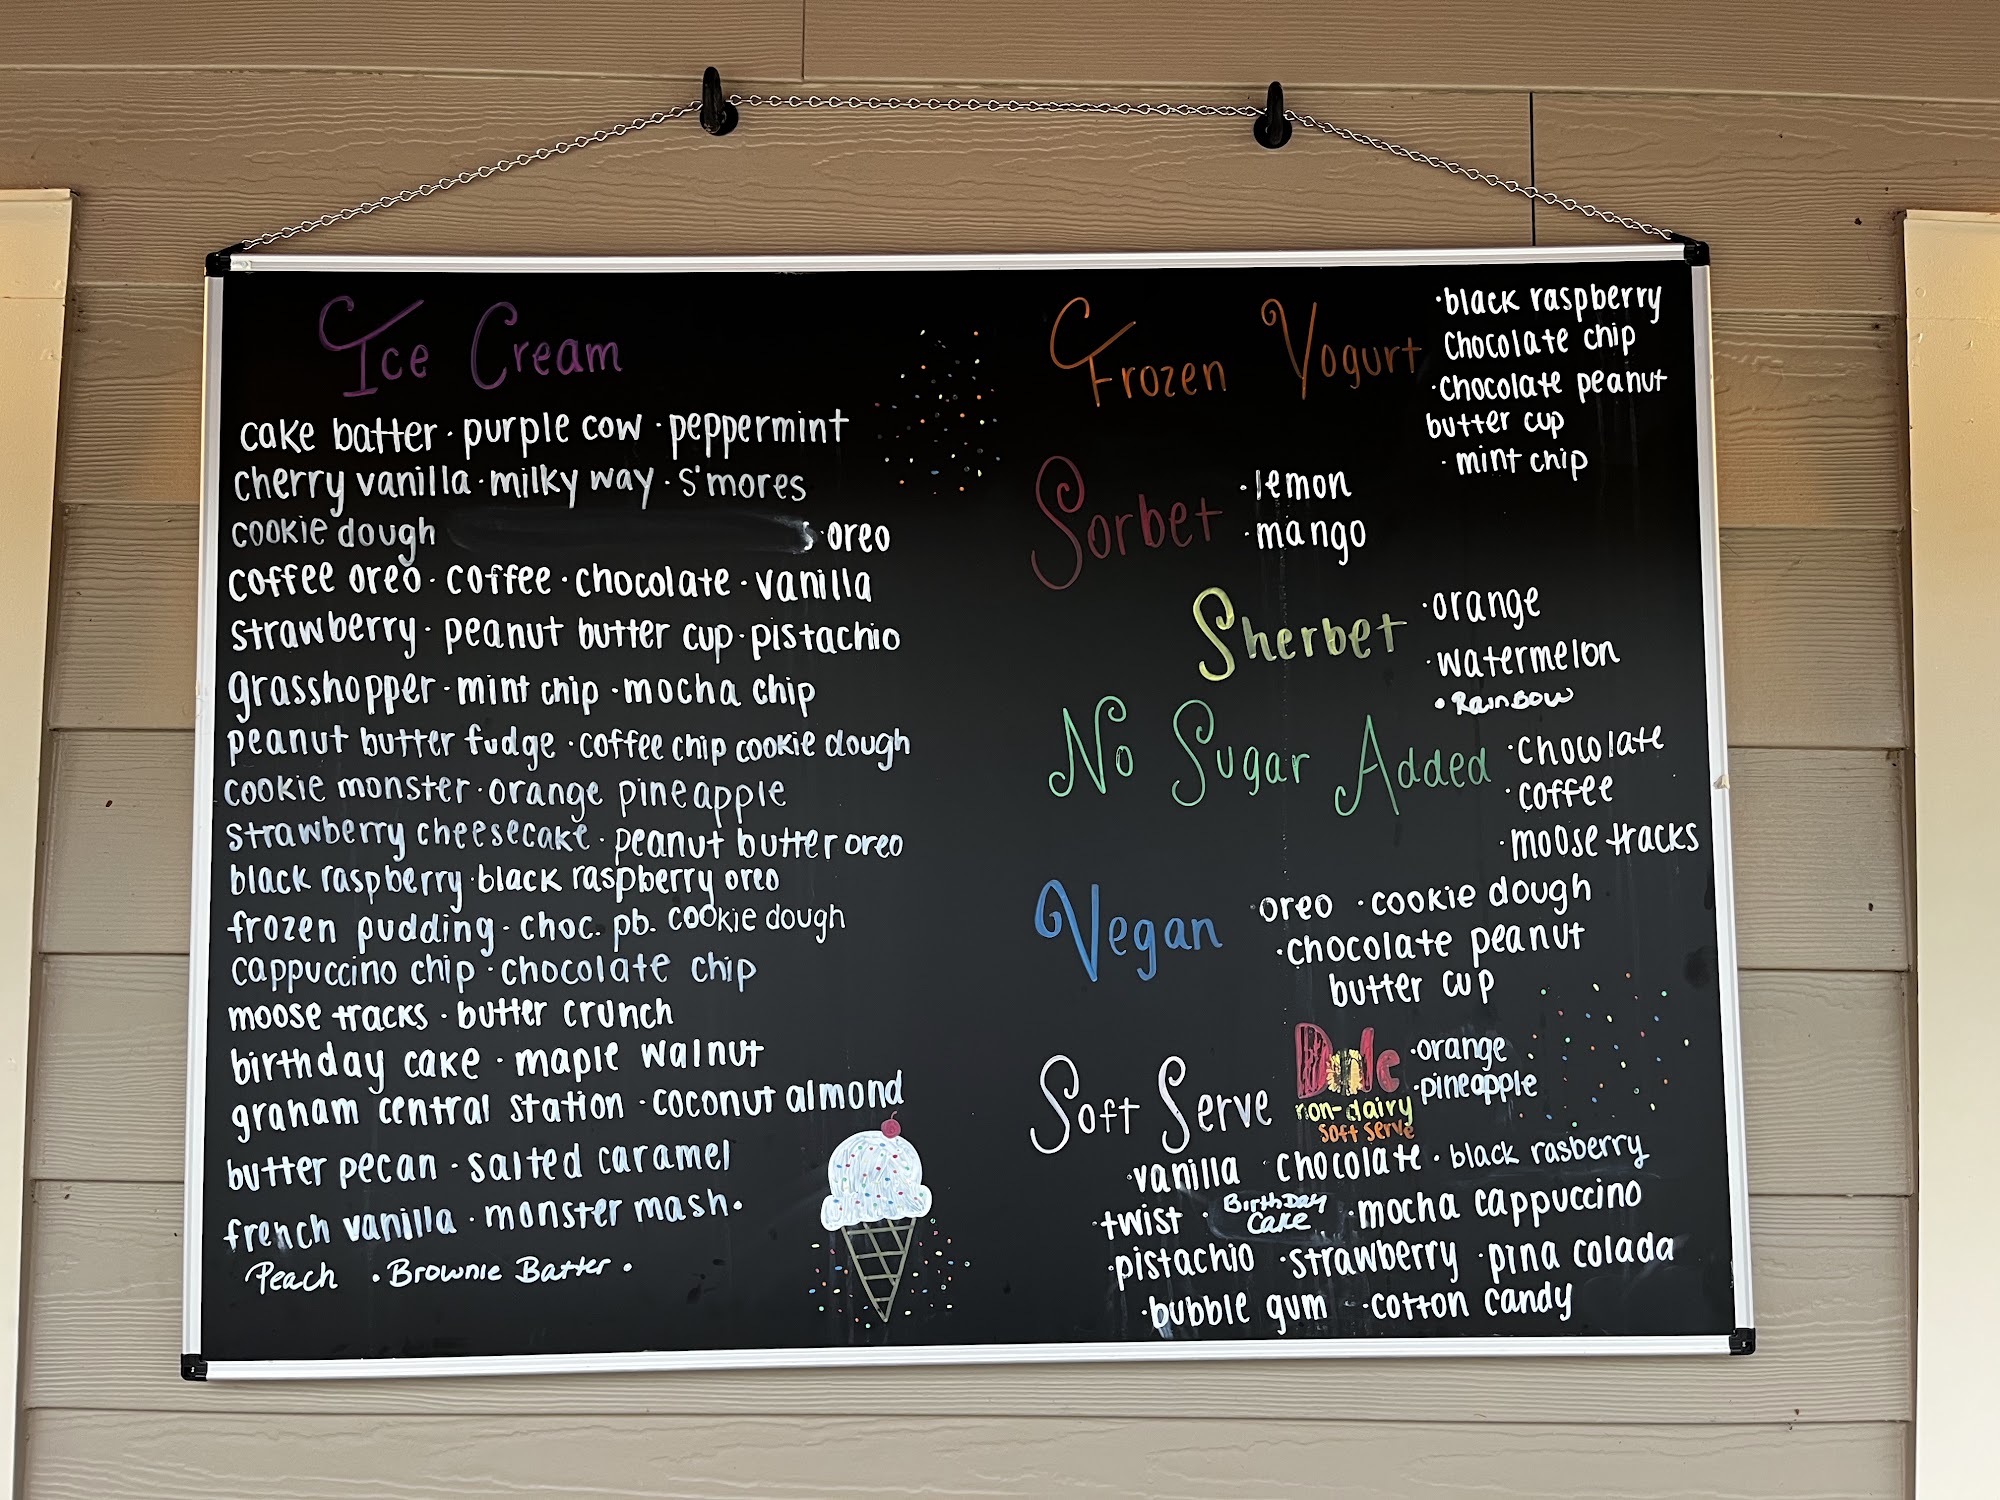 Ice Cream
cake batter · purple cow · peppermint
cherry vanilla · milky way · s'mores
cookie dough s · oreo
coffee oreo · coffee · chocolate · vanilla
strawberry · peanut butter cup · pistachio
grasshopper · mint chip · mocha chip
peanut butter fudge · coffee chip cookie dough
cookie monster · orange pineapple
strawberry cheesecake · peanut butter oreo
black raspberry · black raspberry oreo
frozen pudding · choc. pb. cookie dough
cappuccino chip · chocolate chip
moose tracks · butter crunch
birthday cake · maple walnut
graham central station · coconut almond
butter pecan · salted caramel
french vanilla · monster mash ·
Peach · Brownie Batter ·
Frozen Yogurt
· black raspberry
Chocolate chip
· chocolate peanut
butter cup
· mint chip
Sorbet
· lemon
· mango
Sherbet
· orange
· watermelon
· RainBow
No Sugar Added
· chocolate
· coffee
· moose tracks
Vegan
· oreo · cookie dough
· chocolate peanut
butter cup
Soft Serve
Dole
non-dairy
soft serve
· orange
· pineapple
· vanilla · chocolate · black rasberry
· twist · BirthDay Cake · mocha cappuccino
· pistachio · strawberry · pina colada
· bubble gum · cotton candy